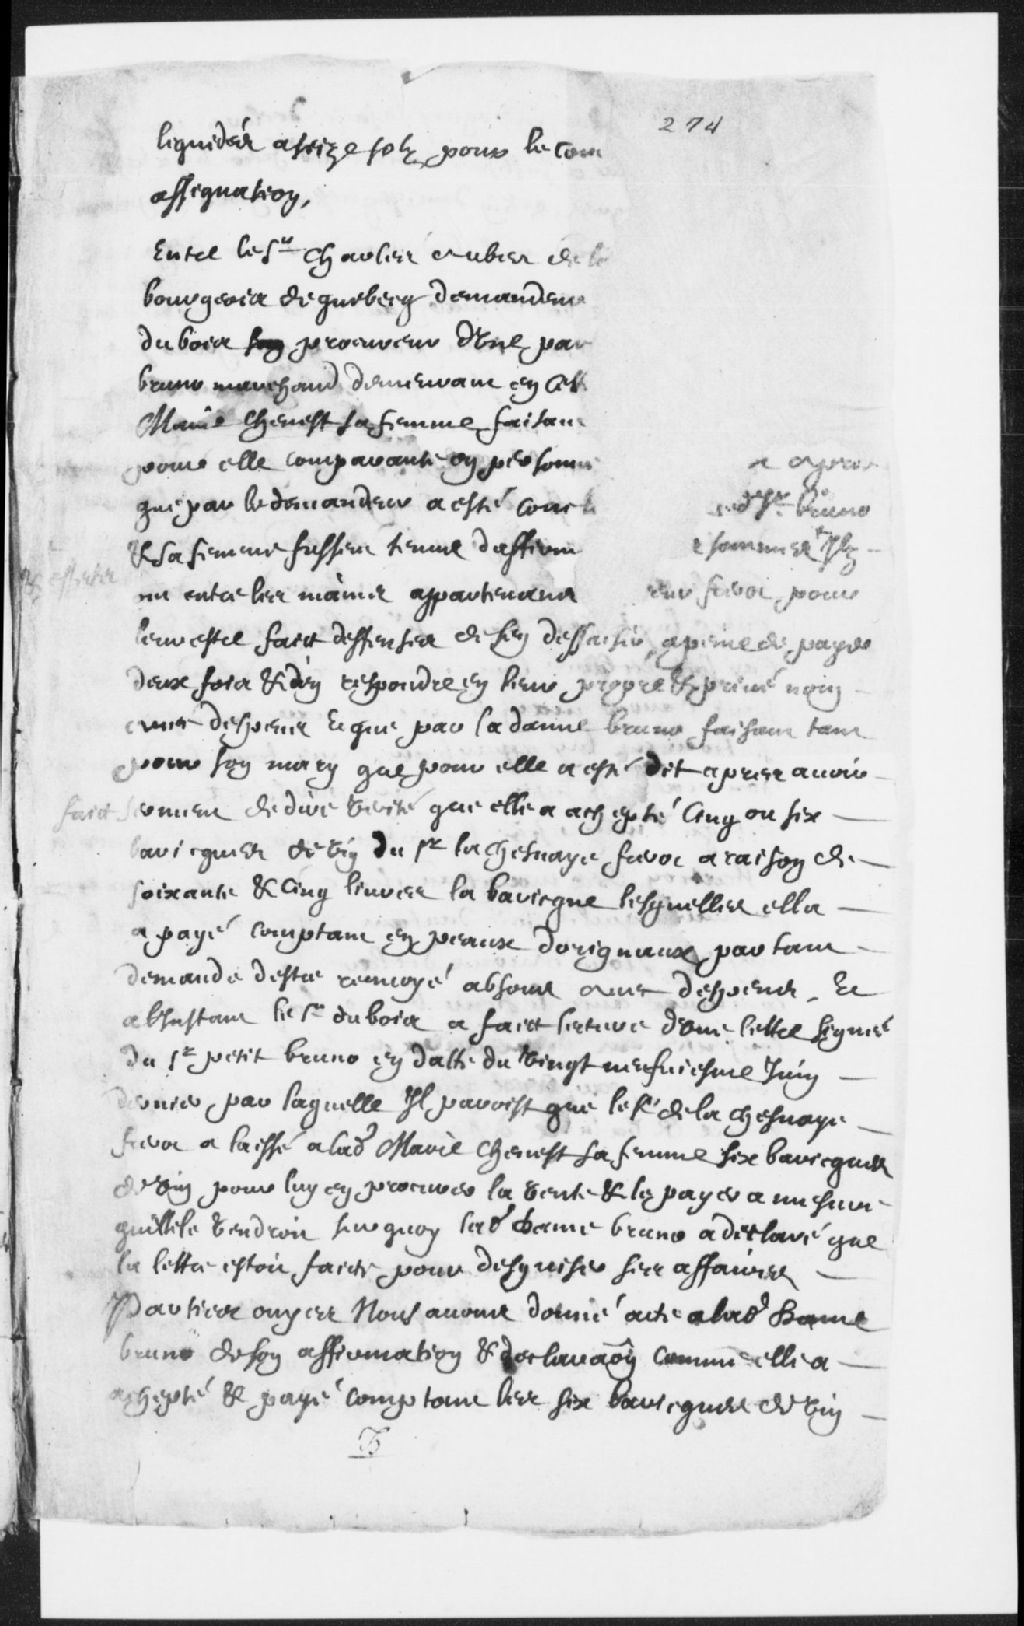 274
liquidés a seize solz pour le com
assignation,
Entre le Sr Charles aubert de la
bourgeois de quebecq demandeur
dubois procureur d'Une par
bruno marchand demeurant en cette
Marie Chenest sa femme faisant
pour elle comparante en personne
que par le demandeur a esté conclu
& sa femme fussent tenue d'affirm
entre les mains appartenant
leur estre faict deffenses de s'en dessaisir, a peine de payer
deux fois & d'en respondre en leur propre & privé nom
avec despens Et que par la dame bruno faisant tant
pour son mary que pour elle a esté dit apres avoir
faict serment de dire Verité que elle a achepté Cinq ou six
bariques de Vin du Sr lachesnaye a raison de
soixante & Cinq livres la barique lesquelles ella
a payé comptant en peaux d'orignaux partant
demande d'estre renvoyé absoute avec despens, Et
a l'Instant le Sr dubois a faict lecture d'Une lettre signée
du Sr petit bruno en datte du Vingt neufviesme Juin
dernier par laquelle Il paroist que le Sr de la chesnaye
a laissé a lad. Marie Chenest sa femme six bariques
de Vin pour luy en procurer la Vente & les payer a mesure
qu'elle Vendroit sur quoy lad. dame bruno a declaré que
la lettre estoit faicte pour desguiser ses affaires
Parties ouyes Nous avons donné acte a lad. dame
bruno de son affirmation & declaraôn comme elle a
achepté & payé comptant les six bariques de Vin